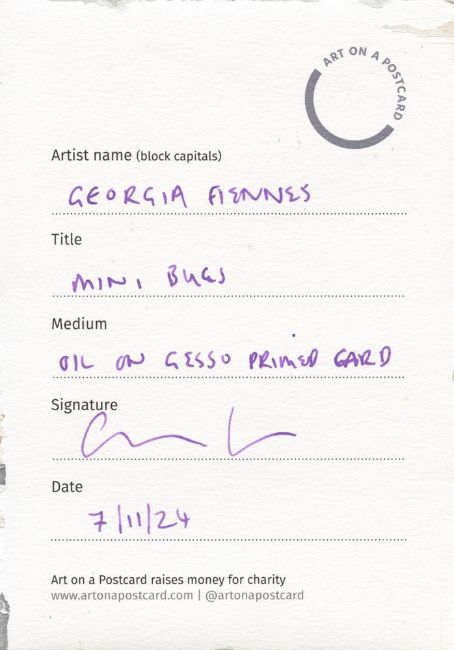 ART ON A POSTCARD
Artist name (block capitals)
GEORGIA FIENNES
Title
MINI BUGS
Medium
OIL ON GESSO PRIMED CARD
Signature
Date
7/11/24
Art on a Postcard raises money for charity
www.artonapostcard.com | @artonapostcard